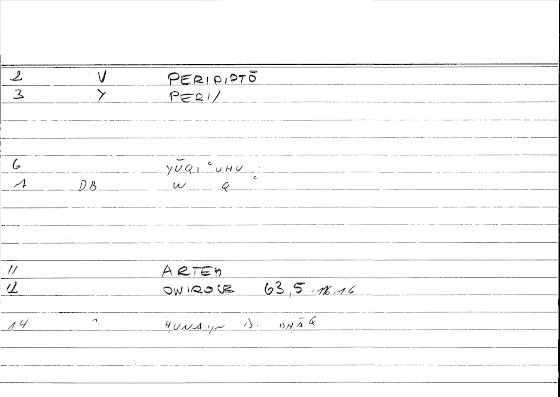 2 V PERIPIPTŌ
3 Y PERI/
6 YŪQIʿUHU
1 DB W Q
11 ARTEM
12 ONIROCR 63,5.18.16
14 ḤUNAYN B. ISḤĀQ